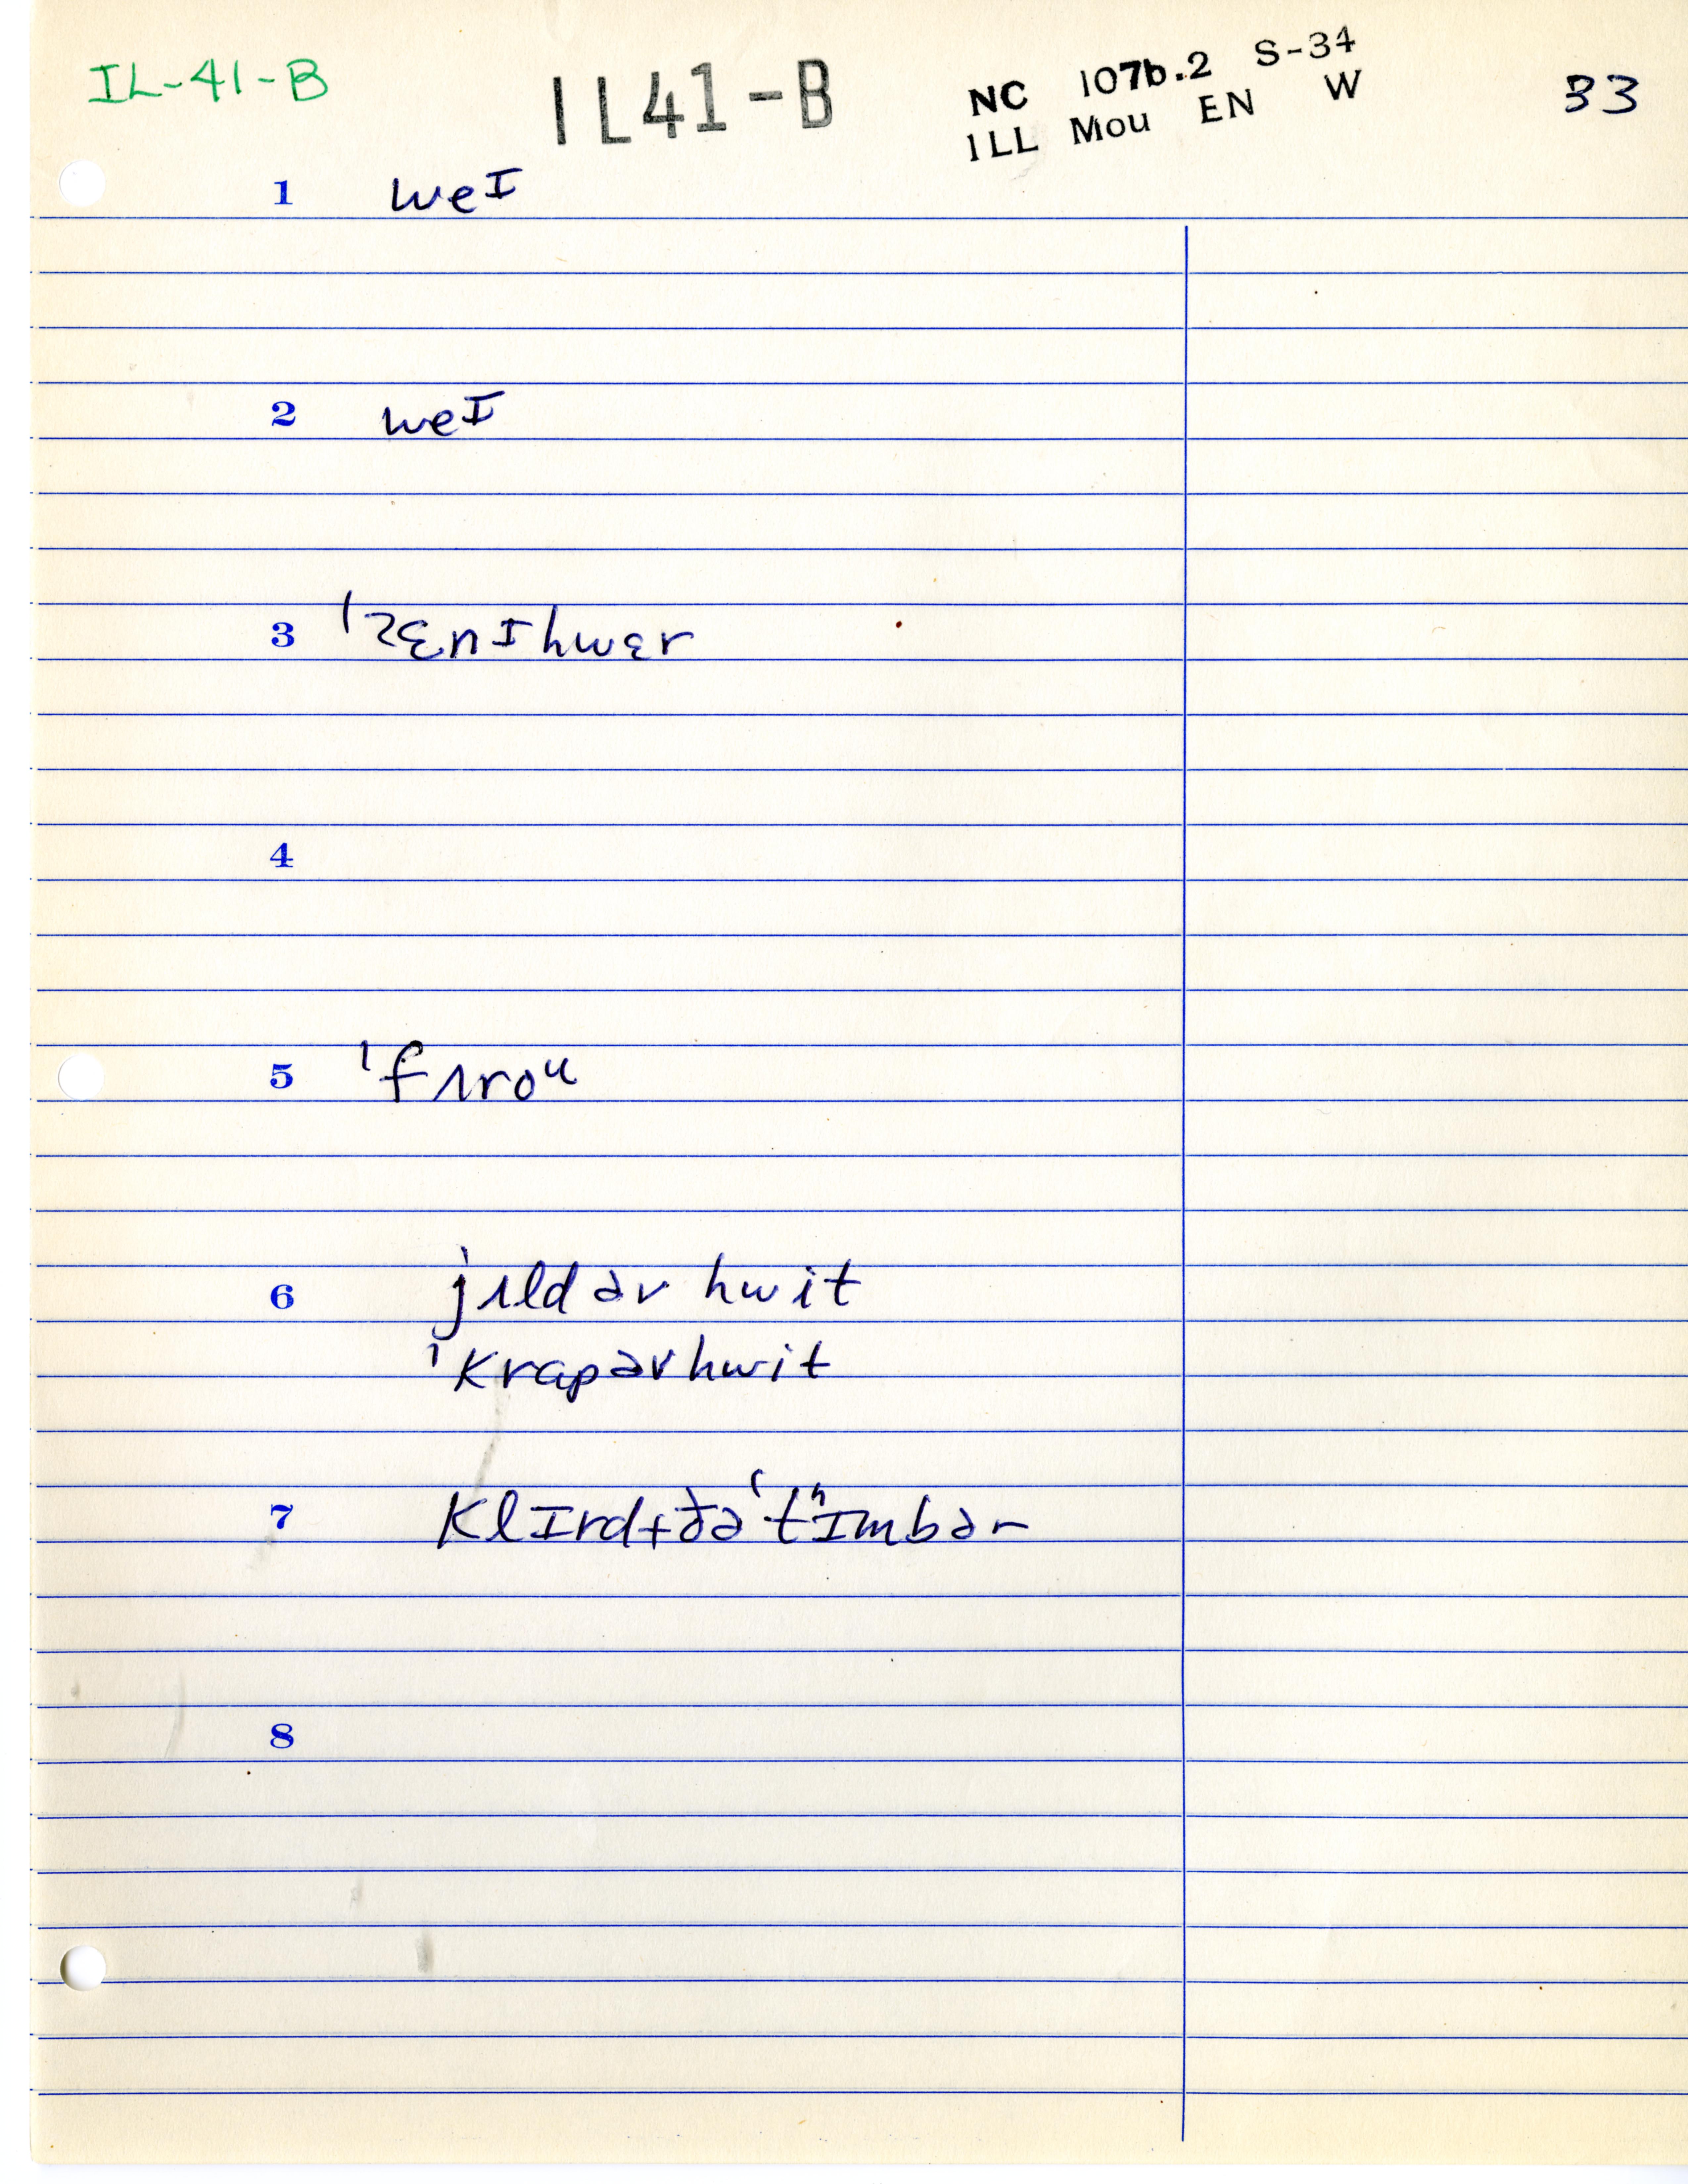 IL-41-B
IL41-B
NC 107b.2 S-34
ILL Mou EN W
33
1 weᴵ
2 weᴵ
3 ˈʔɛnɪhwɛr
4
5 ˈfʌroᵘ
6 jɪld əv hwit
ˈkrɑpəvhwit
7 klɪrd ɨ ðə ˈtʰɪmbər
8